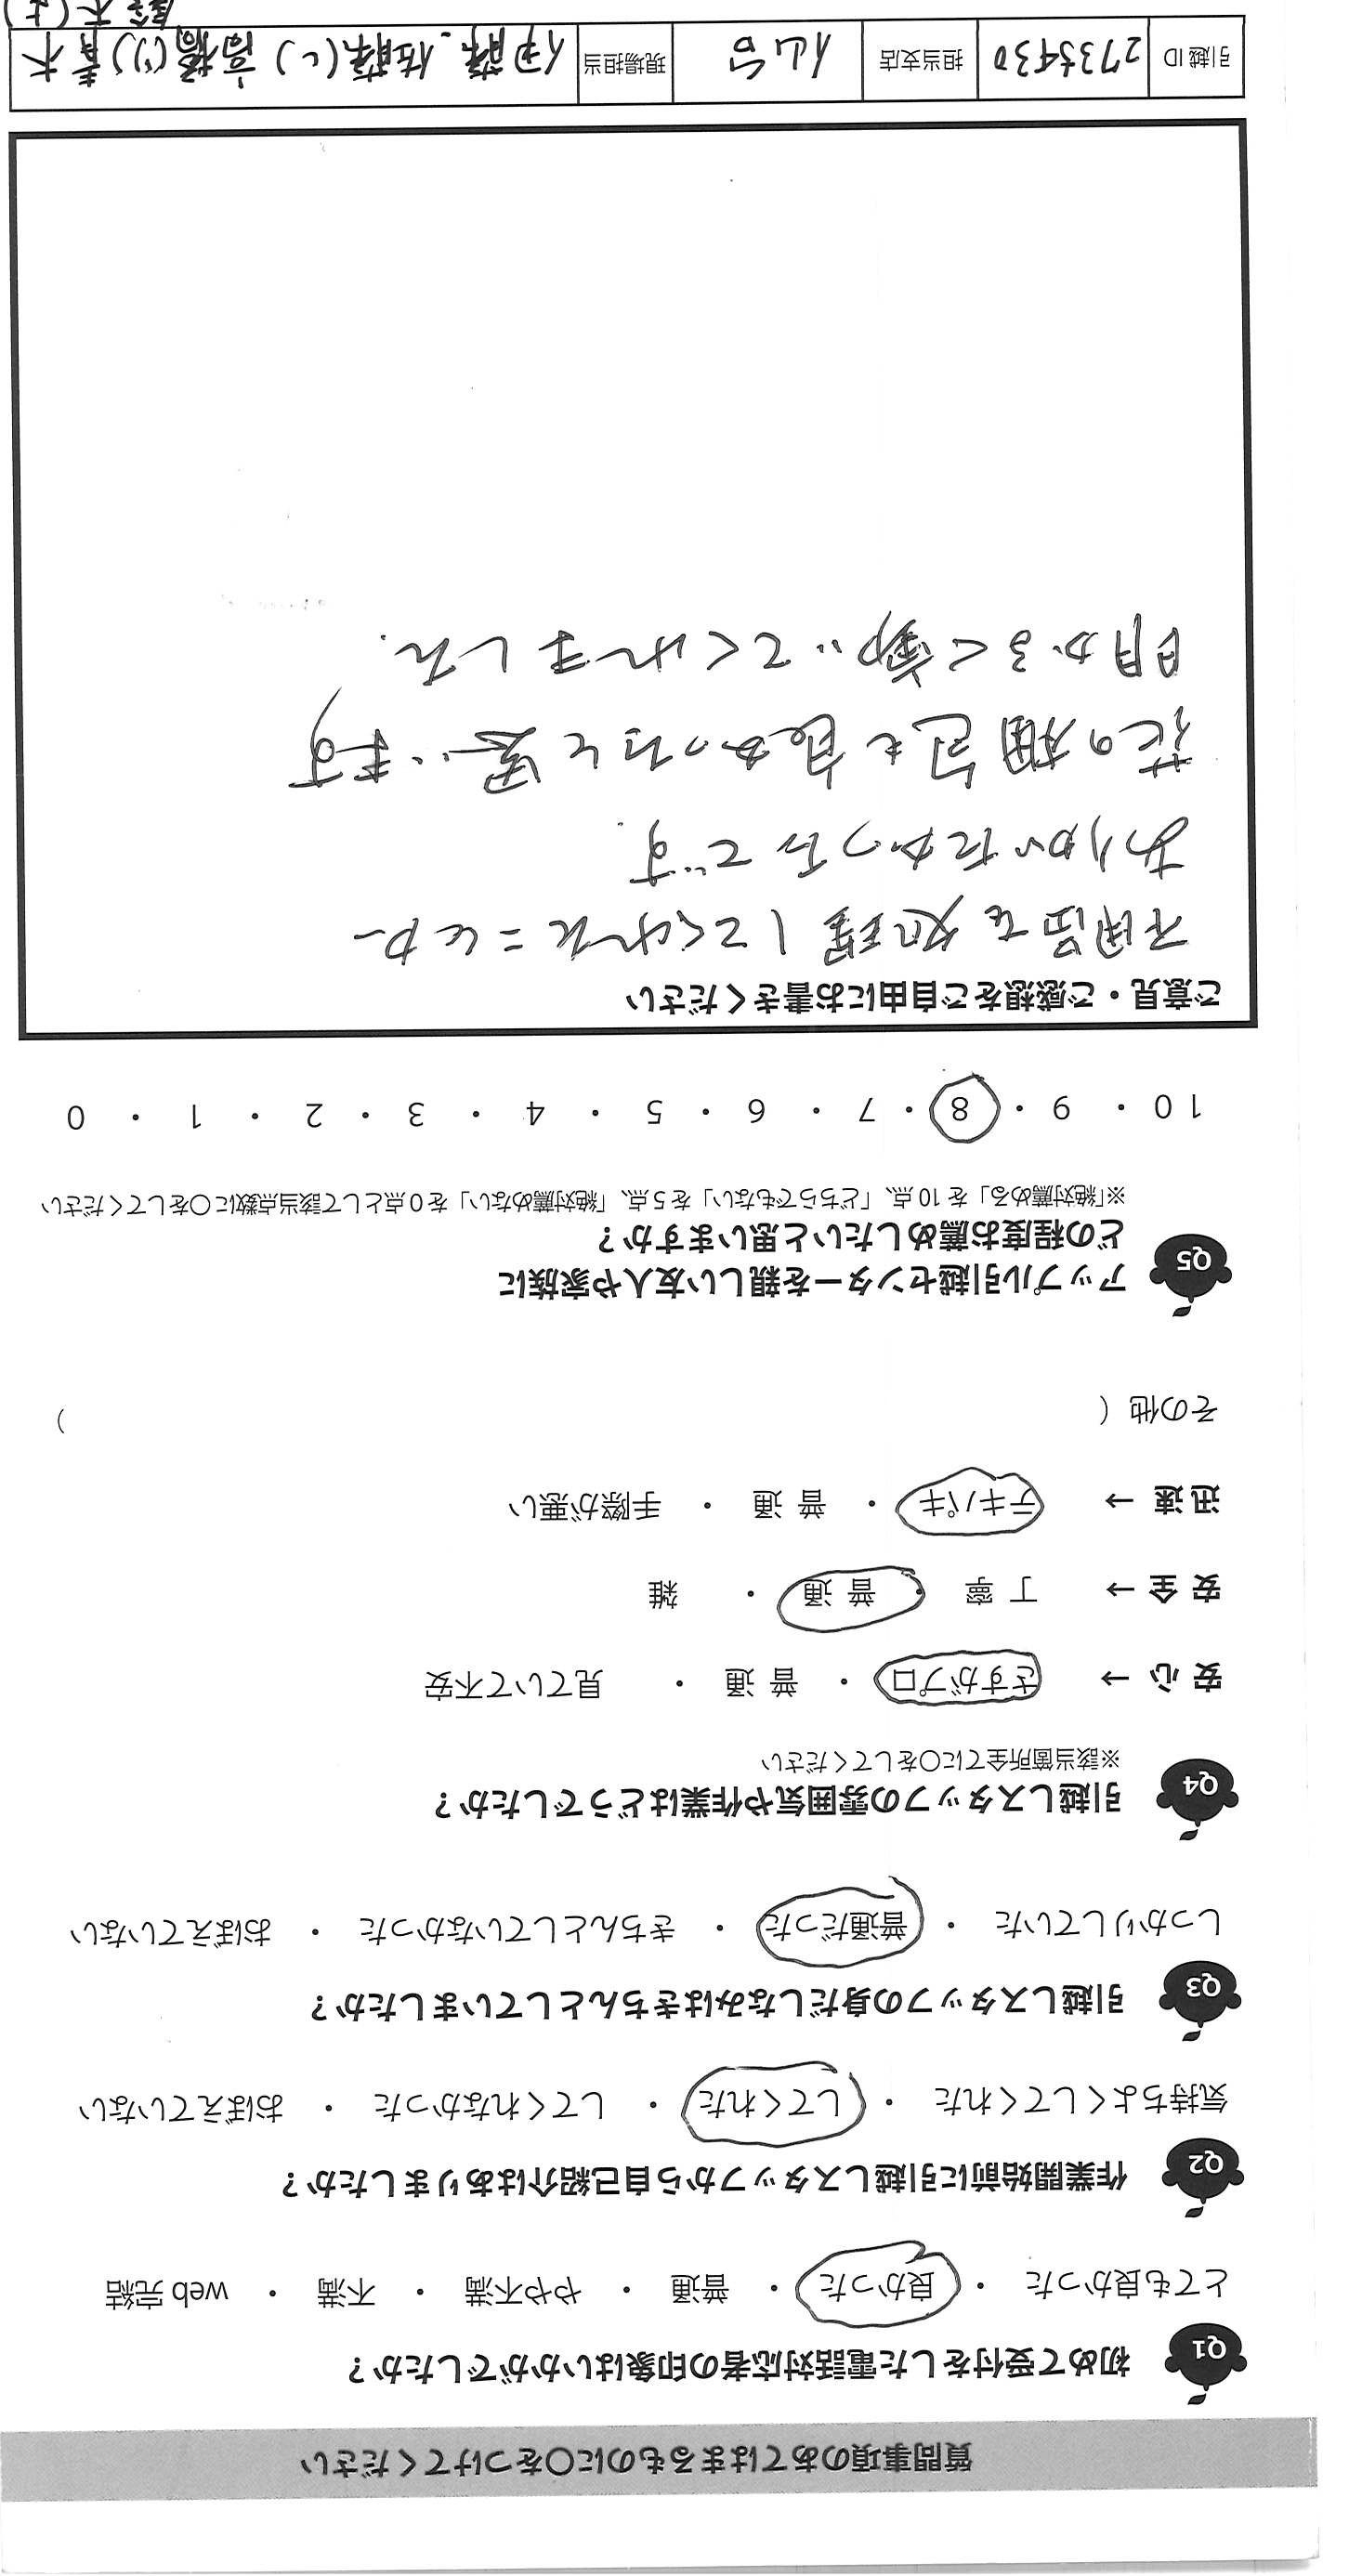 質問事項のあてはまるものに〇をつけてください
Q1 初めて受付をした電話対応者の印象はいかがでしたか？
とても良かった ・ 良かった ・ 普通 ・ やや不満 ・ 不満 ・ web 完結
Q2 作業開始前に引越しスタッフから自己紹介はありましたか？
気持ちよくしてくれた ・ してくれた ・ してくれなかった ・ おぼえていない
Q3 引越しスタッフの身だしなみはきちんとしていましたか？
しっかりしていた ・ 普通だった ・ きちんとしていなかった ・ おぼえていない
Q4 引越しスタッフの雰囲気や作業はどうでしたか？
※該当箇所全てに〇をしてください
安 心 → さすがプロ ・ 普 通 ・ 見ていて不安
安 全 → 丁 寧 ・ 普 通 ・ 雑
迅 速 → テキパキ ・ 普 通 ・ 手際が悪い
その他（ ）
Q5 アップル引越センターを親しい友人や家族に
どの程度お薦めしたいと思いますか？
※「絶対薦める」を 10 点、「どちらでもない」を 5 点、「絶対薦めない」を 0 点として該当点数に〇をしてください
10 ・ 9 ・ 8 ・ 7 ・ 6 ・ 5 ・ 4 ・ 3 ・ 2 ・ 1 ・ 0
ご意見・ご感想をご自由にお書きください
不用品を処理してくれたことが
ありがたかったです。
花の梱包も良かったと思います
明かるく動いてくれました。
引越 ID 2735430 担当支店 仙台 現場担当 伊藤、佐藤(ヒ) 高橋(リ) 青木
鈴木(よ)